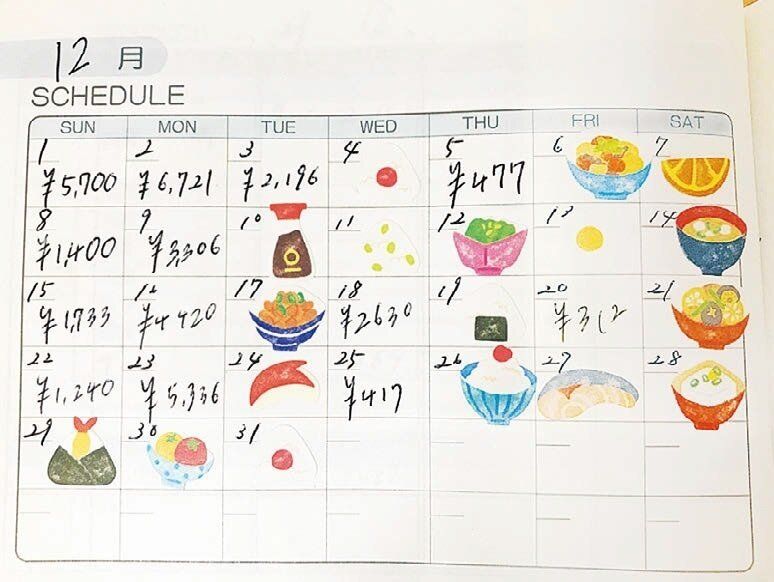 12月
SCHEDULE
SUN MON TUE WED THU FRI SAT
1 2 3 4 5 6 7
¥5,700 ¥6,721 ¥2,196 ¥477
8 9 10 11 12 13 14
¥1,400 ¥3,306
15 16 17 18 19 20 21
¥1,733 ¥4420 ¥2630 ¥312
22 23 24 25 26 27 28
¥1,240 ¥5,336 ¥417
29 30 31